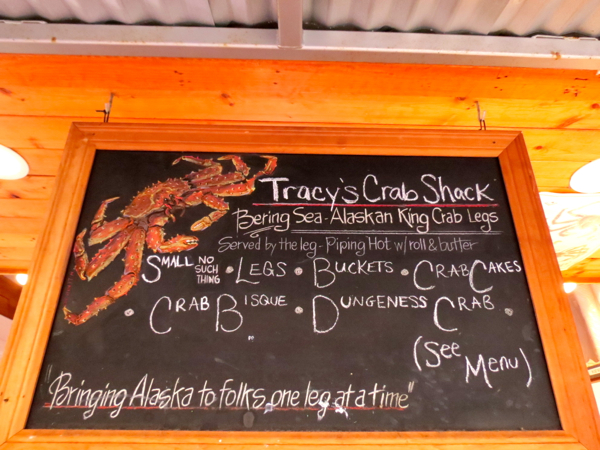 Tracy's Crab Shack
Bering Sea - Alaskan King Crab Legs
Served by the leg - Piping Hot w/ roll & butter
Small NO SUCH THING • Legs • Buckets • Crab Cakes
• Crab Bisque • Dungeness Crab •
(See Menu)
"Bringing Alaska to folks, one leg at a time"